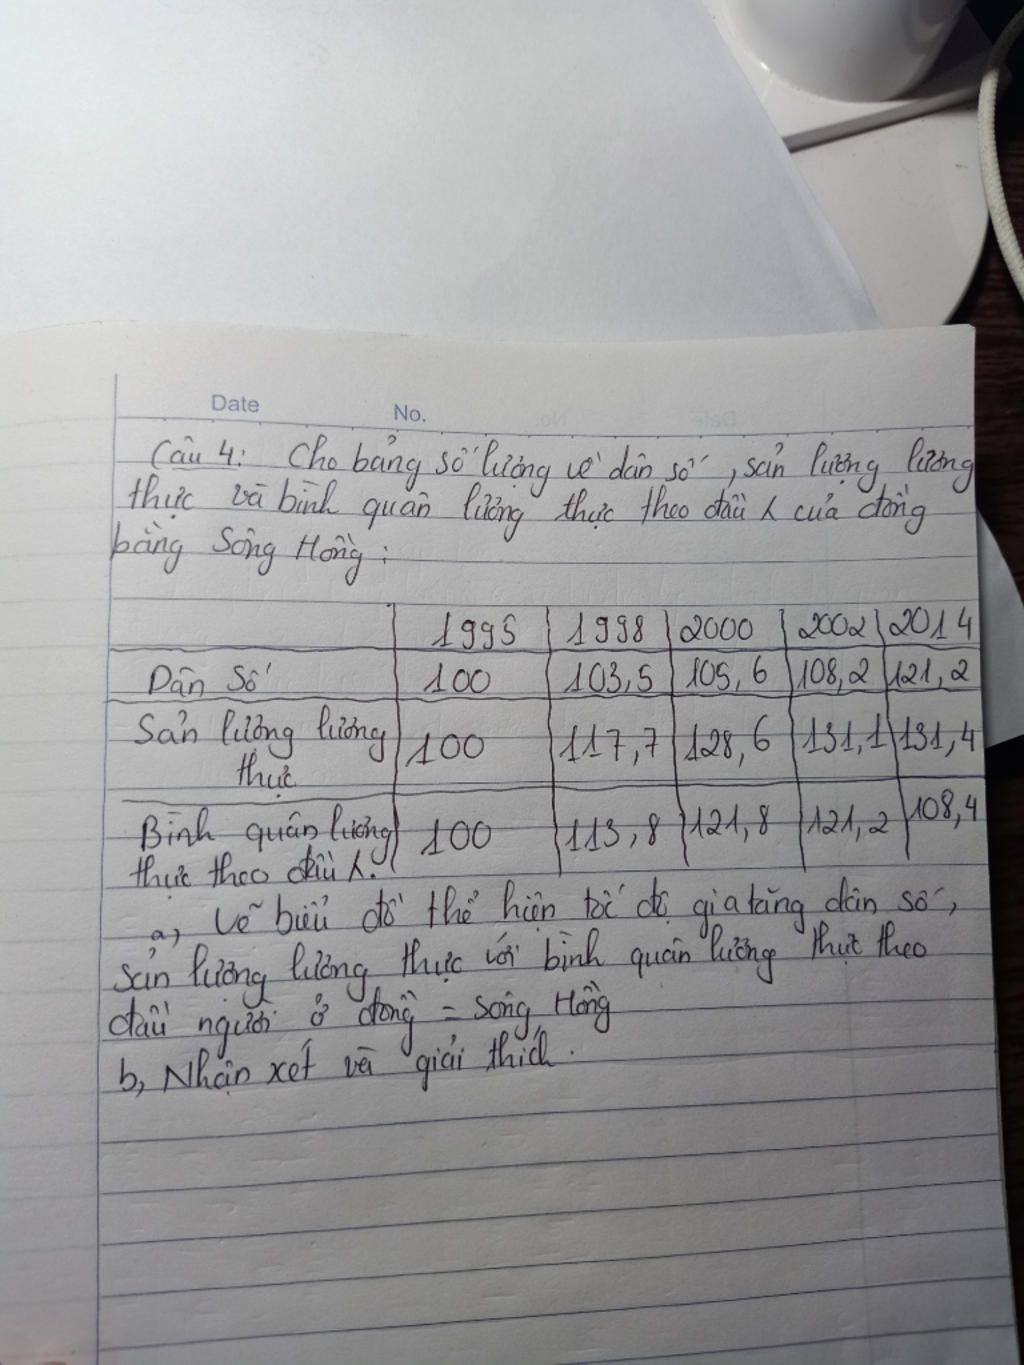 Date No.
Câu 4: Cho bảng số lượng về dân số, sản lượng lương
thực và bình quân lương thực theo đầu λ của đồng
bằng Sông Hồng:
1995 1998 2000 2002 2014
Dân Số 100 103,5 105,6 108,2 121,2
Sản lượng lương thực 100 117,7 128,6 131,1 131,4
Bình quân lương thực theo đầu λ. 100 113,8 121,8 121,2 108,4
a, Vẽ biểu đồ thể hiện tốc độ gia tăng dân số,
sản lượng lương thực với bình quân lương thực theo
đầu người ở đồng = Sông Hồng
b, Nhận xét và giải thích.